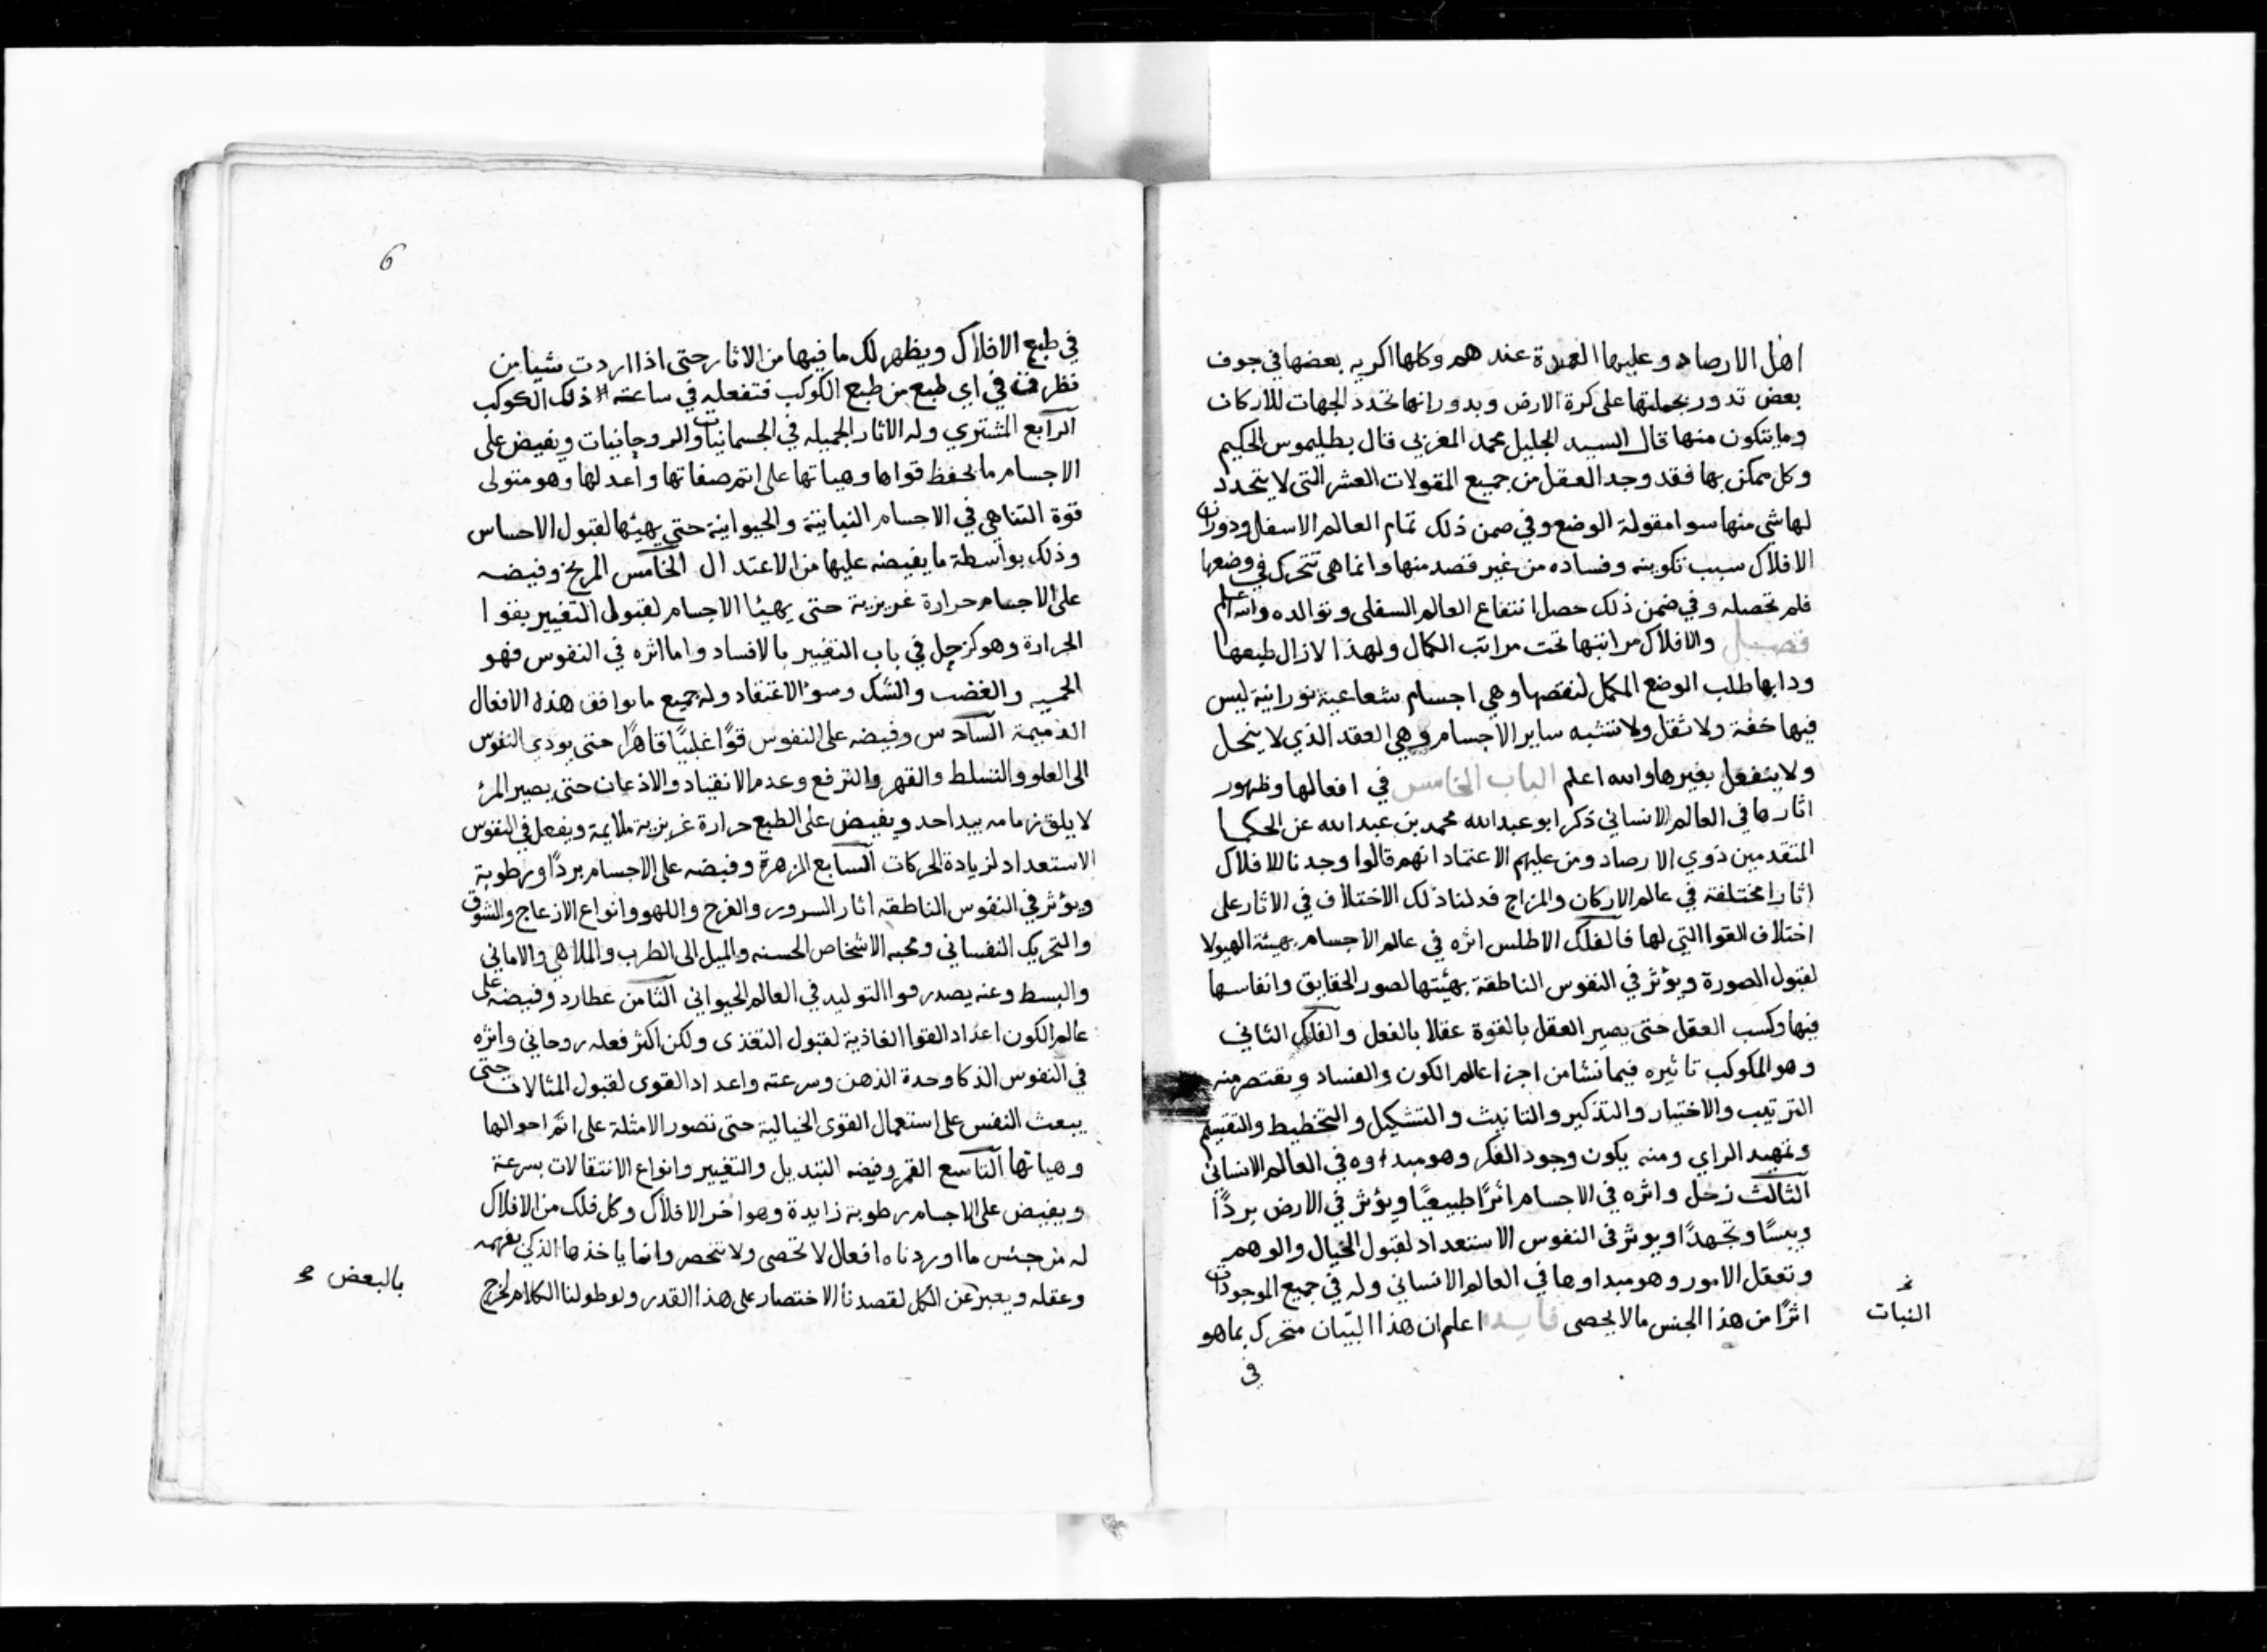 اهل الارصاد وعليها العمدة عندهم وكلها اكريه بعضها في جوف
بعض تدور بجملتها على كرة الارض وبدورانها تحدد الجهات للاركان
وما يتكون منها قال السيد الجليل محمد المغربى قال بطليموس الحكيم
وكل ممكن بها فقد وجد العقل من جميع المقولات العشر التى لا يتجدد
لها شى منها سوا مقولة الوضع وفي ضمن ذلك تمام العالم الاسفل ودوران
الافلاك سبب تكوينه وفساده من غير قصد منها وانما هى تتحرك في وضعها
فلم تحصله وفي ضمن ذلك حصل انتفاع العالم السفلى وتوالده والله اعلم
فصل والافلاك مراتبها تحت مراتب الكمال ولهذا لازال طبعها
ودابها طلب الوضع المكمل لنقصها وهي اجسام شعاعية نورانية ليس
فيها خفة ولا ثقل ولا تشبه ساير الاجسام وهي العقد الذي لا ينحل
ولا ينفعل بغيرها والله اعلم الباب الخامس في افعالها وظهور
اثارها في العالم الانساني ذكر ابو عبد الله محمد بن عبد الله عن الحكما
المتقدمين ذوي الارصاد ومن عليهم الاعتماد انهم قالوا وجدنا للافلاك
اثارا مختلفة في عالم الاركان والمزاج فدلنا ذلك الاختلاف في الاثار على
اختلاف القوا التي لها فالفلك الاطلس اثره في عالم الاجسام بهيئة الهيولا
لقبول الصورة ويؤثر في النفوس الناطقة بهيئتها لصور الحقايق وانفاسها
فيها وكسب العقل حتى يصير العقل بالقوة عقلا بالفعل والفلك الثاني
وهو المكوكب تاثيره فيما نشا من اجزا عالم الكون والفساد ويقتصر منه
الترتيب والاختيار والتذكير والتانيث والتشكيل والتخطيط والتقسيم
وتمهيد الراي ومنه يكون وجود الفكر وهو مبداوه في العالم الانسانى
الثالث زحل واثره في الاجسام اثرًا طبيعيًا ويؤثر في الارض بردًا
ويبسًا وتجهدًا ويوثر في النفوس الاستعداد لقبول الخيال والوهم
وتعقل الامور وهو مبداوها في العالم الانساني وله في جميع الموجودات
اثرًا من هذا الجنس ما لا يحصى فايده اعلم ان هذا البيان متحرك بما هو
النبات
في
6
في طبع الافلاك ويظهر لك ما فيها من الاثار حتى اذا اردت شيا من
نظرت في اي طبع من طبع الكوكب فتفعله في ساعته ذلك الكوكب
الرابع المشتري وله الاثار الجميله في الجسمانيات والروحانيات ويفيض على
الاجسام ما يحفظ قواها وهياتها على اتم صفاتها واعدلها وهو متولى
قوة التناهي في الاجسام النباتية والحيوانية حتى يهيئها لقبول الاحساس
وذلك بواسطة ما يفيضه عليها من الاعتدال الخامس المريخ وفيضه
على الاجسام حرارة غريزية حتى يهيئا الاجسام لقبول التغيير بقوا
الحرارة وهو كزحل في باب التغيير بالافساد واما اثره في النفوس فهو
الحميه والغضب والشك وسوء الاعتقاد وله جميع ما يوافق هذه الافعال
الذميمة السادس وفيضه على النفوس قوًا غلبيًا قاهرًا حتى يودي النفوس
الى العلو والتسلط والقهر والترفع وعدم الانقياد والاذعان حتى يصير المرء
لا يلق زمامه بيد احد ويفيض على الطبع حرارة غريزية ملايمة ويفعل في النفوس
الاستعداد لزيادة الحركات السابع الزهرة وفيضه على الاجسام بردًا ورطوبة
ويؤثر في النفوس الناطقه اثار السرور والفرح واللهو وانواع الازعاج والشوق
والتحريك النفساني ومحبه الاشخاص الحسنه والميل الى الطرب والملاهي والاماني
والبسط وعنه يصدر قوا التوليد في العالم الحيوانى الثامن عطارد وفيضه على
عالم الكون اعداد القوا الغاذية لقبول التغذى ولكن اكثر فعله روحاني واثره
في النفوس الذكا وحدة الذهن وسرعته واعداد القوى لقبول المثالات حتى
يبعث النفس على استعمال القوى الخيالية حتى تصور الامثلة على اتم احوالها
وهياتها التاسع القمر وفيضه التبديل والتغيير وانواع الانتقالات بسرعة
ويفيض على الاجسام رطوبة زايدة وهو اخر الافلاك وكل فلك من الافلاك
له من جنس ما اوردناه افعال لا تحصى ولا تنحصر وانما ياخذها الذكى بفهمه
وعقله ويعبر عن الكل لقصدنا الاختصار على هذا القدر ولو طولنا الكلام لخرج
بالبعض صح